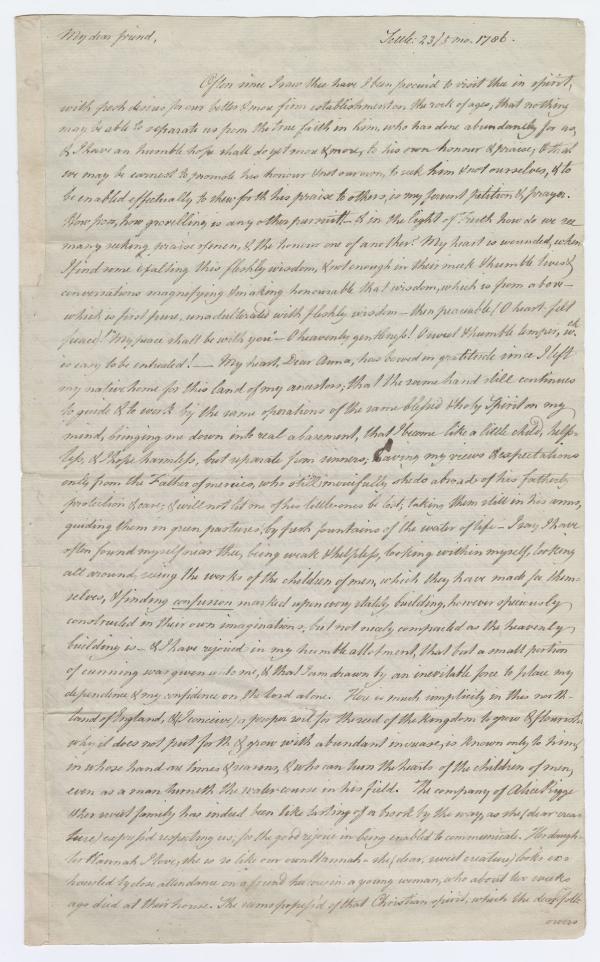 My dear friend, Settle: 23/5 mo. 1786.
Often since I saw thee have I been permitted to visit thee in spirit,
with fresh desires for our better & more firm establishment on the rock of ages, that nothing
may be able to separate us from the true faith in him, who has done abundantly for us,
& I have an humble hope shall do yet more & more, to his own honour & praise, & that
we may be earnest to promote his honour & not our own, to seek him & not ourselves, & to
be enabled effectually to shew forth his praise to others, is my fervent petition & prayer.
How poor, how grovelling is any other pursuit – & in the light of Truth how do we see
many seeking praise of men, & the honour one of another? My heart is wounded, when
I find some exalting this fleshly wisdom, & not enough in their meek & humble lives &
conversations magnifying & making honourable that wisdom, which is from above –
which is first pure, unadulterated with fleshly wisdom – then peaceable! O heart-felt
peace! "My peace shall be with you" – O heavenly gentleness! O sweet & humble temper, wch.
is easy to be entreated! – My heart, Dear Anna, has bowed in gratitude since I left
my native home for this land of my ancestors, that the same hand still continues
to guide & to work by the same operations of the same blessed & holy Spirit on my
mind, bringing me down into real abasement, that I become like a little child, help-
less, & I hope harmless, but separate from sinners, having my views & expectations
only from the Father of mercies, who still mercifully sheds abroad of his fatherly
protection & care, & will not let one of his little ones be lost, taking them still in his arms,
guiding them in green pastures, by fresh fountains of the water of life – I say, I have
often found myself near thee, being weak & helpless, looking within myself, looking
all around, seeing the works of the children of men, which they have made for them-
selves, & finding confusion marked upon every stately building, however speciously
constructed in their own imaginations, but not nicely compacted as the heavenly
building is – & I have rejoiced in my humble allotment, that but a small portion
of cunning was given unto me, & that I am drawn by an inevitable force to place my
dependence & my confidence on the Lord alone. Here is much simplicity in this north-
land of England, & (I conceive) a proper soil for the seed of the kingdom to grow & flourish
why it does not put forth & grow with abundant increase, is known only to him,
in whose hand are times & seasons, & who can turn the hearts of the children of men,
even as a man turneth the water course in his field. The company of Alice Rigge
& her sweet family has indeed been like tasting of a brook by the way, as she (dear crea-
ture) express'd respecting us; for the good rejoice in being enabled to communicate. Her daugh-
ter Hannah I love, she is so like our own Hannah – she (dear, sweet creature) looks ex-
hausted by close attendance on a friend, a young woman, who about two weeks
ago died at their house. She seems possess'd of that Christian spirit, which the dear foll-
owers